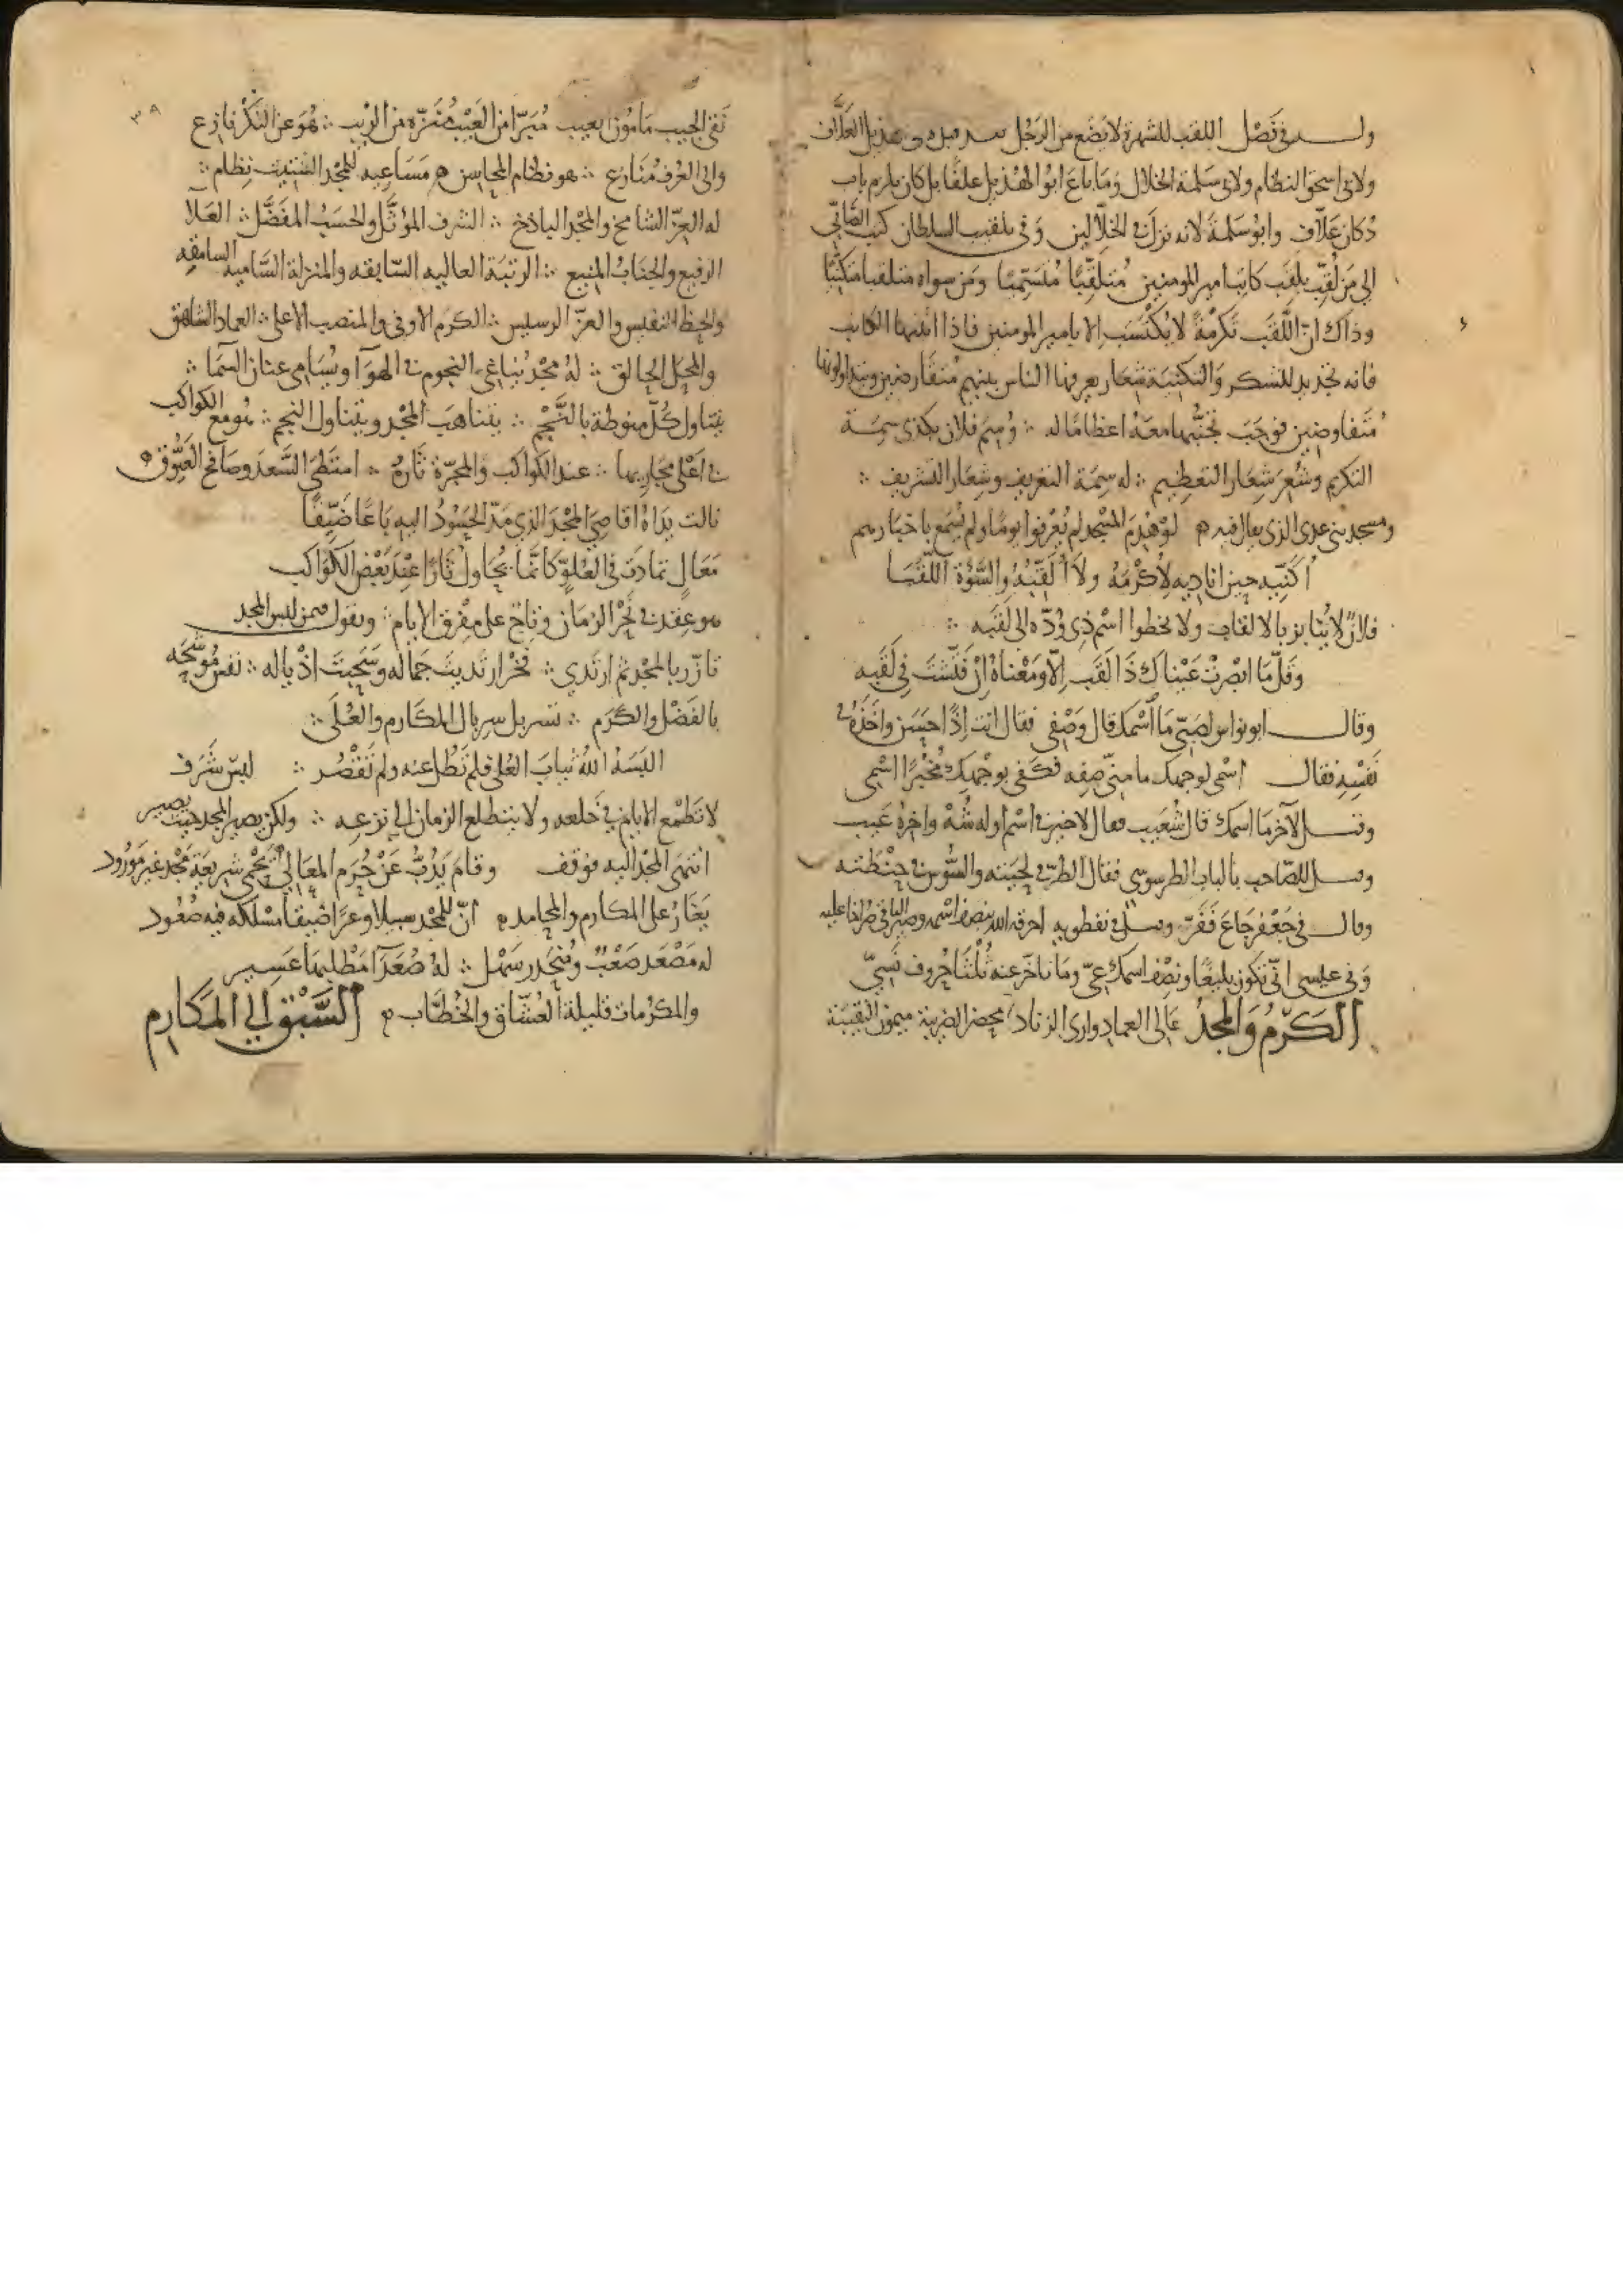 ولـه في فَصْل اللقب للشهرة لا يَضَع من الرَجُل العَلّاف
ولابي اسحق النظام ولابي سَلمة الخلال وَمَا باعَ ابوُ الهُذيل علفًا بل كان يلزم باب
دُكان عَلّاف وابوُ سَلمةَ لانه نزلَ في الخلّالين وَفي تلقيب السلطان كتب الصَّابي
الي مَن لُقِّب بلقَب كاتِب امير المومنين مُتلقِّبًا مُتَسَمِّيًا وَمَن سواه متلقبا متكنّيًا
وذاك انّ اللّقَب تَكرُمَةٌ لا يُكتسَب الا بامير المومنين فاذا الكاتب
فانه تجديد للشكر وَالتكنيَة شِعَار يعرفها الناس بينهم مُتقارضين ويتداولونها
مُتفاوضين فوجَبَ تجنُّبهَا معَهُ اعظامًا له ∴ وُسِمَ فلان بكذي سِمَة
التكريم وشُعِرَ شِعَار التعظيم ∴ له سِمَة التعريف وشِعَار التشريف ∴
ومسجد بني عدى الذى يقال فيه لوْ هُدِمَ المسْجِد لم يُعْرفوا يومًا ولم يُسْمع باخبارهم
أُكنِّيه حين اناديه لِأُكْرِمَهُ ولا أُلَقِّبُهُ والسَّوْءَة اللَّقَبَا
فلانٌ لا يُنابز بالالقاب ولا يخطوا اسْم ذِي وُدّه الى لَقبَه ∴
وَقلّمَا ابْصرتْ عَيْناك ذَا لَقَب اِلّا وَمَعْناهُ اِنْ فَتّشتَ في لَقَبِه
وقال ابو نواس لصَبيّ مَا أسْمك قال وَصْفي فقال انت اِذًا حَسَن واخَذَهُ من
نَفسِه فقال اسْمى لوجهك ما منّي صِفه فكَفي بوَجْهِك مُخْبرًا اسْمي
وقيـل لآخر مَا اسمك قال شُعَيب فقال لا خيرَ في اسْم اوله شُهْ واخرهُ عَيب
وقيـل للصّاحب بالباب الطرسوسي فقال الطرّ في لحيَته والسُّوس في حِنْطته
وقال في جَعْفر جَاعَ فَفَرّ وقيـل في نفطويه احرقه الله بنصف اسْمه وصيّر الباقي صُراخا عليه
وَفي عيسى انّي تكون بليغًا ونِصْف اسمك عِيّ وَمَا تاخّر عنه ثُلْثا حُروف نَسِيّ
الكَرَمُ وَالمَجْدُ عَالي العماد وارى الزناد محض الضريبة ميمُون النقيبَة
٣٩
نَقيّ الجيب مَامُون بغيب مُبَرّأ من العَيْب مُنَزّه من الرَيْب ∴ هُوَ عن النُكْر نازع
والى العُرْف مُنازع ∴ هو نظام المحاسن مَسَاعيه للمجْد الشتيت نِظام ∴
له العِزّ الشامخ والمجْد الباذخ ∴ الشرف المؤثَّل والحسَبُ المفَضَّل ∴ العَلاَ
الرفيع والجنابُ المَنِيع ∴ الرتبَة العاليه السّابقه والمنزلة السَّاميه السامقه
والحظ النفيس والعزّ الرسيس ∴ الكرَم الاوفى والمنصب الاعلى ∴ العماد الشاهق
والمحَل الحالق ∴ لهُ مجْدٌ يُنَاغي النجوم في الهوآ ويُسَامى عنان السَمَا ∴
يتناول كُلّ منوطة بالنَّجْم ∴ يتناهب المجْد ويتناول النجم ∴ هو مع الكواكب
في اَعْلى مجَاريها ∴ عند الكواكب والمجرّة ثَارهُ ∴ امتَطَى السَّعد وصَافح العَيُّوق
نالت يدَاهُ اقاصِيَ المجْدَ الذي مَدّ الحَسُودُ اليه بَاعًا ضَيّقًا
مَعَالٍ تمادَت في العُلوِّ كانّمَا تحَاول ثَارًا عِنْدَ بَعْض الكَوَاكب
هو عِقد في نَحْر الزمَان وتاج على مفْرق الايام ∴ وتقول فيمن لبس المجد
تازّر بالمجْد ثم ارتَدي ∴ فخْرٌ ارتَديتَ جمَاله وَسَحَبتَ اذْياله ∴ نفسٌ مُوشّحَه
بالفَضْل والكَرَم ∴ تسَربل سِربال المكَارم والعُلَى ∴
البَسَهُ اللهُ ثيابَ العُلى فلم تَطُل عنه ولم تَقْصُر ∴ لبِسَ شَرَف
لا تَطْمَع الايام في خَلعه ولا يتطلع الزمان الي نزعِه ∴ ولكن يصير المجد حيث يصير
انتهَى المجْد اليه فوَقف وقامَ يَذُبُّ عَنْ حُرَم المَعَالي يَحْمي شريعَة مَجْد غير مَوْرُود
يَغَارُ على المكارم والمحامد انّ للمجْد سبيلا وعرًا ضيقًا مسْلكه فيه صُعُود
له مَصْعَد صَعْبٌ ومُنْحَدر سَهْل ∴ لهُ صُعَدَآ مَطْلبهَا عَسِير
والمكرُمات قليلة العُشّاق والخُطّاب السَّبْق الى المَكارم